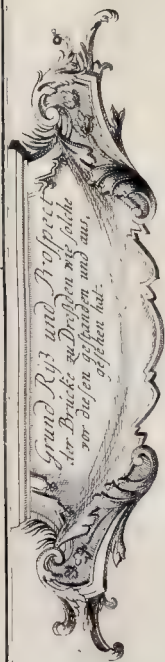 Grund Riß und Prospect
der Brücke zu Dresden wie solche
vor diesen gestanden und aus,
gesehen hat.